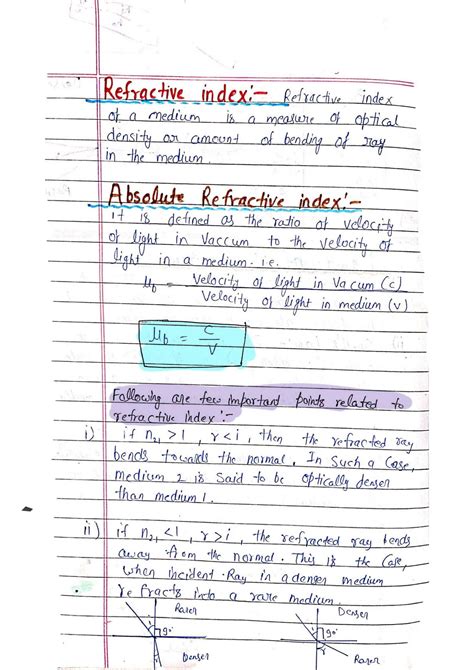 Refractive index:- Refractive index
of a medium is a measure of optical
density or amount of bending of ray
in the medium.
Absolute Refractive index:-
it is defined as the ratio of velocity
of light in Vaccum to the velocity of
light in a medium. i.e.
μb = Velocity of light in Vacum (c)
Velocity of light in medium (v)
μb = C
V
Following are few important points related to
refractive index:-
i) if n21 >1 , r<i , then the refracted ray
bends towards the normal. In Such a Case,
medium 2 is Said to be optically denser
than medium 1.
ii) if n21 <1, r>i, the refracted ray bends
away from the normal. This is the Case,
when incident Ray in a denser medium
refracts into a rare medium.
Rarer Denser
i 90° i 90°
r Denser r Rarer